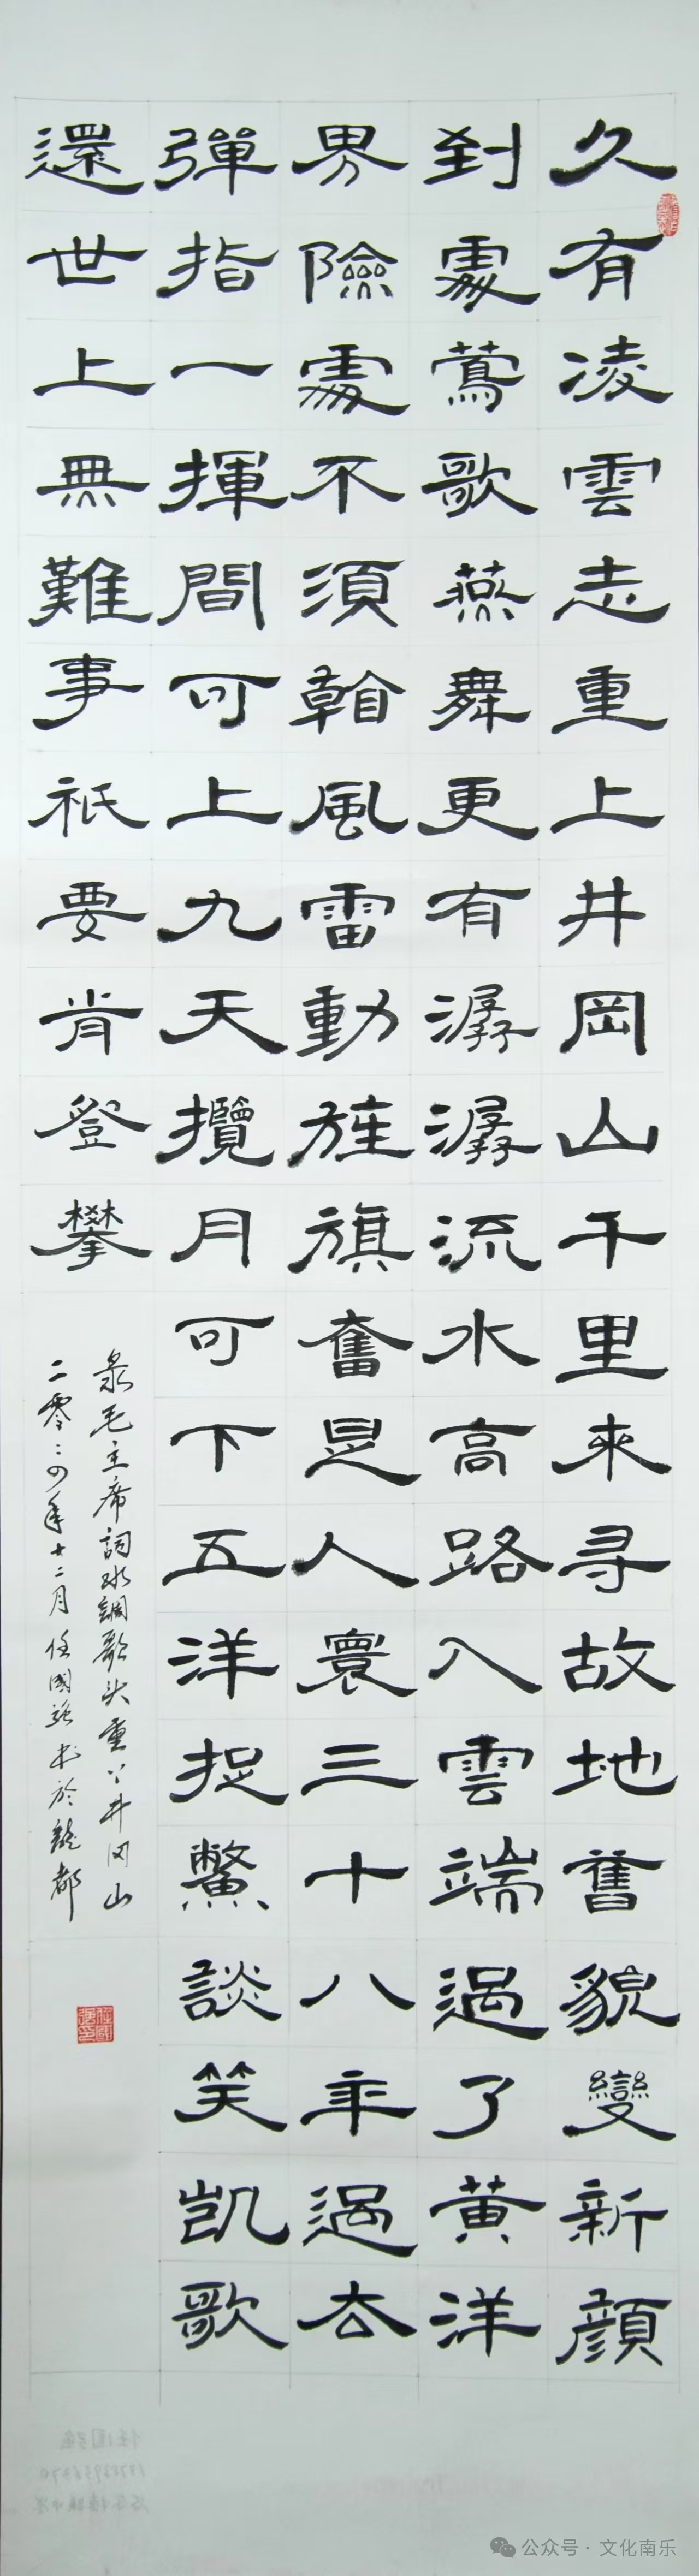 久有凌雲志重上井岡山千里來寻故地舊貌變新顏
到處鶯歌燕舞更有潺潺流水高路入雲端過了黃洋
界險處不須看風雷動旌旗奮是人寰三十八年過去
彈指一揮間可上九天攬月可下五洋捉鱉談笑凱歌
還世上無難事祇要肯登攀
录毛主席詞水調歌头重上井冈山
二零二四年十二月任國强书於龍都
公众号·文化南乐